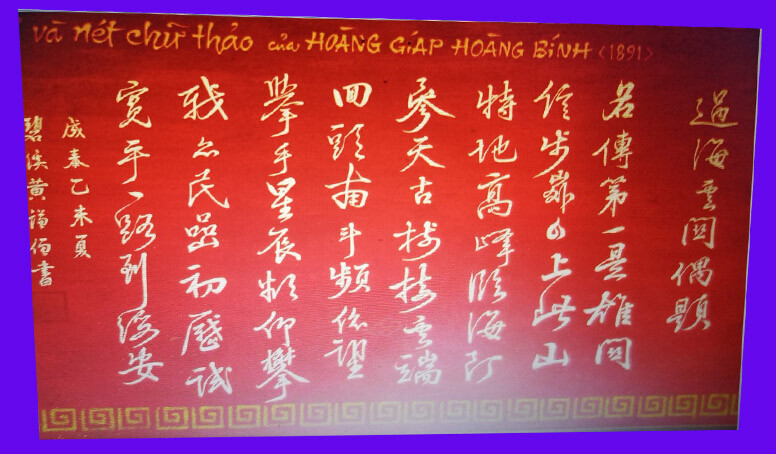 và nét chữ thảo của HOÀNG GIÁP HOÀNG BÍNH <1891>
過海雲關偶題
名傳第一是雄關
信步上此山
特地高峰臨海
參天古樹接雲端
回頭南斗頻依望
舉手星辰仰攀
我亦民嵒初歷試
寬平一路到綏安
成泰乙未夏
碧黃書